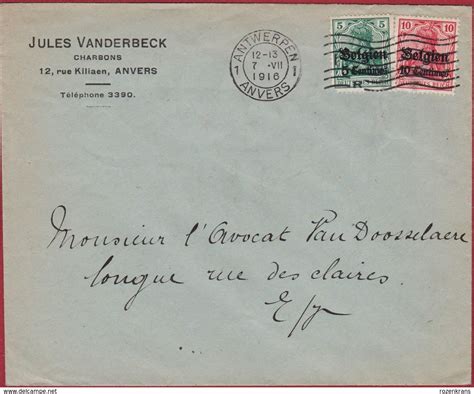 JULES VANDERBECK
CHARBONS
12, rue Kiliaen, ANVERS
Téléphone 3390.
ANTWERPEN
12-13
7 ·VII
1916
1 1
ANVERS
5 5
Belgien
5 Centimes
10 10
Belgien
10 Centimes
Monsieur l'Avocat Van Doosselaere
longue rue des claires
E/V
delcampe.net
rozenkrans